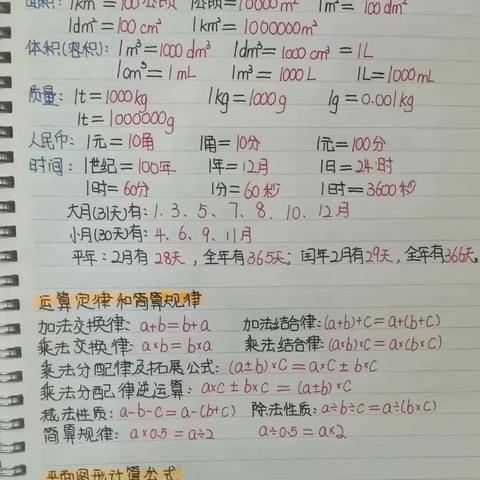 面积: 1km² = 100公顷 1公顷 = 10000m² 1m² = 100dm²
1dm² = 100cm² 1km² = 1000000m²
体积(容积): 1m³=1000dm³ 1dm³=1000cm³ =1L
1cm³=1mL 1m³=1000L 1L=1000mL
质量: 1t=1000kg 1kg=1000g 1g=0.001kg
1t=1000000g
人民币: 1元=10角 1角=10分 1元=100分
时间: 1世纪=100年 1年=12月 1日=24时
1时=60分 1分=60秒 1时=3600秒
大月(31天)有: 1、3、5、7、8、10、12月
小月(30天)有: 4、6、9、11月
平年: 2月有28天, 全年有365天; 闰年2月有29天, 全年有366天。
运算定律和简算规律
加法交换律: a+b=b+a 加法结合律: (a+b)+c=a+(b+c)
乘法交换律: a×b=b×a 乘法结合律: (a×b)×c=a×(b×c)
乘法分配律及拓展公式: (a±b)×c=a×c±b×c
乘法分配律逆运算: a×c±b×c=(a±b)×c
减法性质: a-b-c=a-(b+c) 除法性质: a÷b÷c=a÷(b×c)
简算规律: a×0.5=a÷2 a÷0.5=a×2
平面图形计算公式